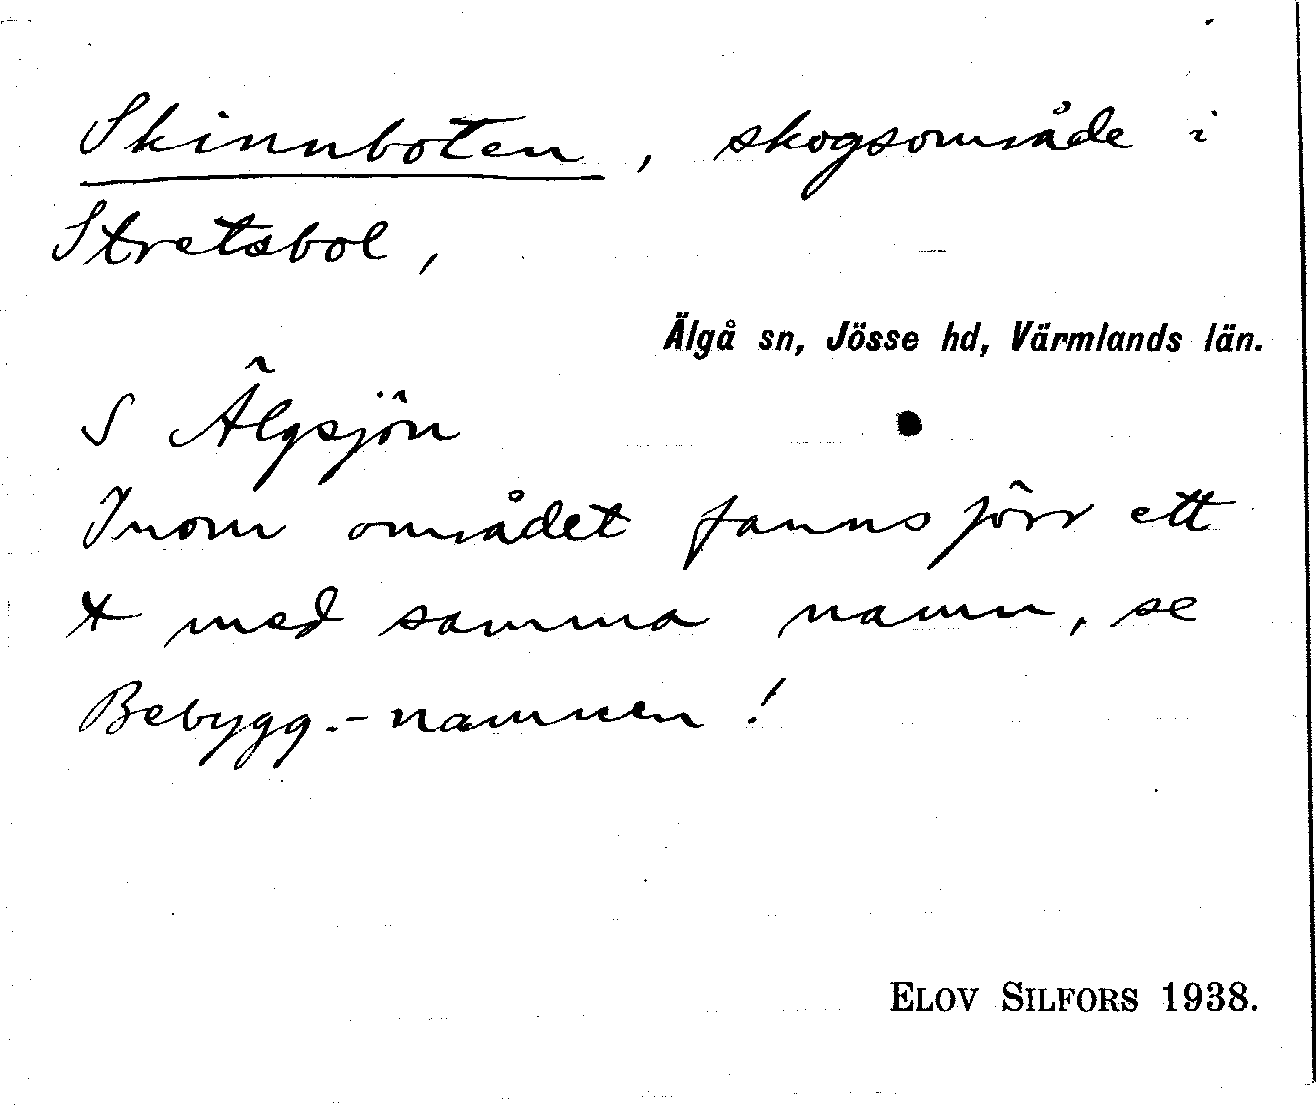 Skinnboten, skogsområde i
Stretsbol,
Älgå sn, Jösse hd, Värmlands län.
S Älgsjön
Inom området fanns förr ett
t med samma namn, se
Bebygg.-namnen!
ELOV SILFORS 1938.